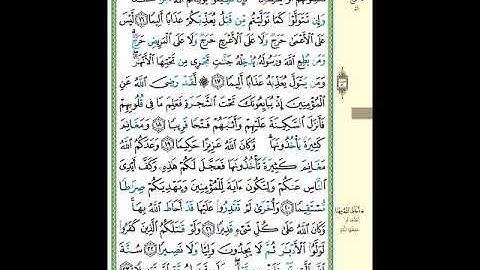 وَإِن تَتَوَلَّوْا۟ كَمَا تَوَلَّيْتُم مِّن قَبْلُ يُعَذِّبْكُمْ عَذَابًا أَلِيمًا ١٦ لَّيْسَ
عَلَى ٱلْأَعْمَىٰ حَرَجٌ وَلَا عَلَى ٱلْأَعْرَجِ حَرَجٌ وَلَا عَلَى ٱلْمَرِيضِ حَرَجٌ
وَمَن يُطِعِ ٱللَّهَ وَرَسُولَهُۥ يُدْخِلْهُ جَنَّـٰتٍ تَجْرِى مِن تَحْتِهَا ٱلْأَنْهَـٰرُ
وَمَن يَتَوَلَّ يُعَذِّبْهُ عَذَابًا أَلِيمًا ١٧ ۞ لَّقَدْ رَضِىَ ٱللَّهُ عَنِ
ٱلْمُؤْمِنِينَ إِذْ يُبَايِعُونَكَ تَحْتَ ٱلشَّجَرَةِ فَعَلِمَ مَا فِى قُلُوبِهِمْ
فَأَنزَلَ ٱلسَّكِينَةَ عَلَيْهِمْ وَأَثَـٰبَهُمْ فَتْحًا قَرِيبًا ١٨ وَمَغَانِمَ
كَثِيرَةً يَأْخُذُونَهَا وَكَانَ ٱللَّهُ عَزِيزًا حَكِيمًا ١٩ وَعَدَكُمُ ٱللَّهُ
مَغَانِمَ كَثِيرَةً تَأْخُذُونَهَا فَعَجَّلَ لَكُمْ هَـٰذِهِۦ وَكَفَّ أَيْدِىَ
ٱلنَّاسِ عَنكُمْ وَلِتَكُونَ ءَايَةً لِّلْمُؤْمِنِينَ وَيَهْدِيَكُمْ صِرَٰطًا
مُّسْتَقِيمًا ٢٠ وَأُخْرَىٰ لَمْ تَقْدِرُوا۟ عَلَيْهَا قَدْ أَحَاطَ ٱللَّهُ بِهَا
وَكَانَ ٱللَّهُ عَلَىٰ كُلِّ شَىْءٍ قَدِيرًا ٢١ وَلَوْ قَـٰتَلَكُمُ ٱلَّذِينَ كَفَرُوا۟
لَوَلَّوُا۟ ٱلْأَدْبَـٰرَ ثُمَّ لَا يَجِدُونَ وَلِيًّا وَلَا نَصِيرًا ٢٢ سُنَّةَ